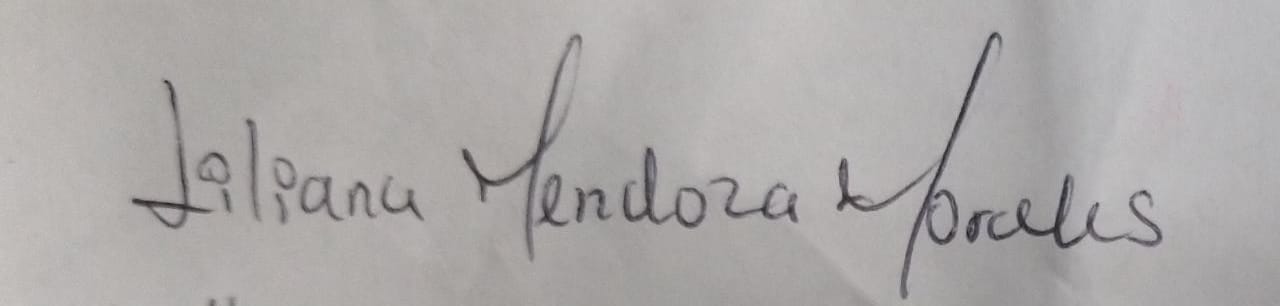 Liliana Mendoza Morales